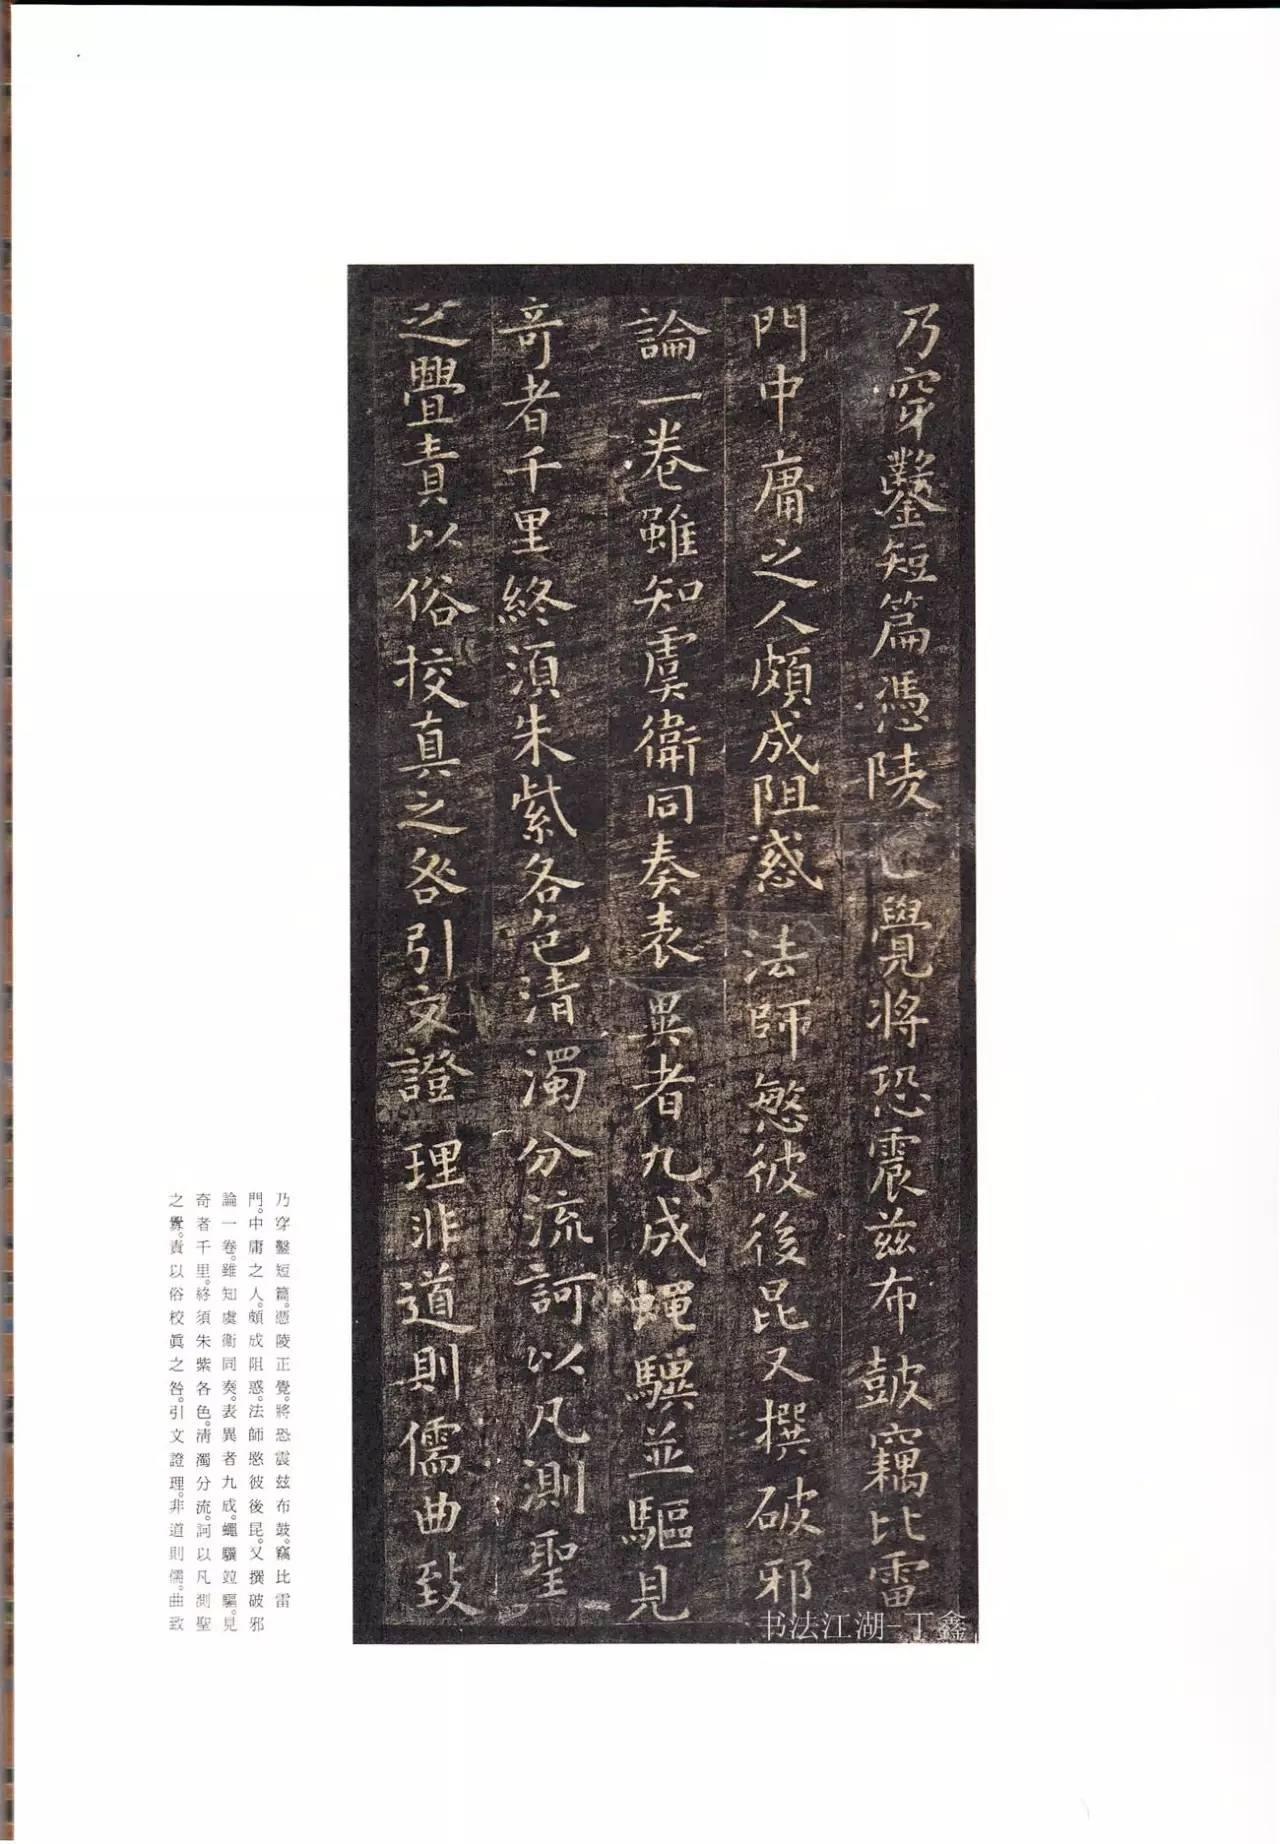 乃穿鑿短篇憑陵正覺將恐震茲布鼓竊比雷
門中庸之人頗成阻惑法師愍彼後昆又撰破邪
論一卷雖知虞衛同奏表異者九成蠅驥並驅見
奇者千里終須朱紫各色清濁分流訶以凡測聖
之舋責以俗挍真之咎引文證理非道則儒曲致
书法江湖-丁鑫
乃穿鑿短篇。憑陵正覺。將恐震茲布鼓。竊比雷
門。中庸之人。頗成阻惑。法師愍彼後昆。又撰破邪
論一卷。雖知虞衛同奏。表異者九成。蠅驥竝驅。見
奇者千里。終須朱紫各色。清濁分流。訶以凡測聖
之釁。責以俗校眞之咎。引文證理。非道則儒。曲致